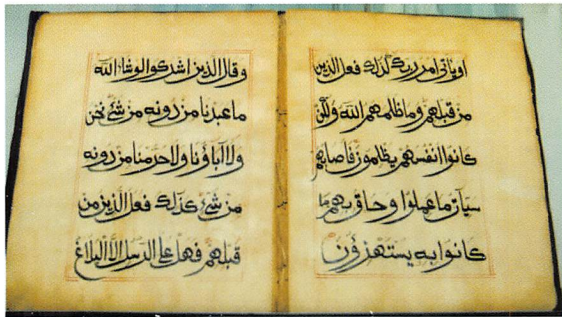 او ياتي امر ربك كذلك فعل الذين
من قبلهم وما ظلمهم الله ولكن
كانوا انفسهم يظلمون فاصابهم
سيات ما عملوا وحاق بهم ما
كانوا به يستهزؤن
وقال الذين اشركوا لو شاء الله
ما عبدنا من دونه من شئ نحن
ولا آباؤنا ولا حرمنا من دونه
من شئ كذلك فعل الذين من
قبلهم فهل على الرسل الا البلاغ